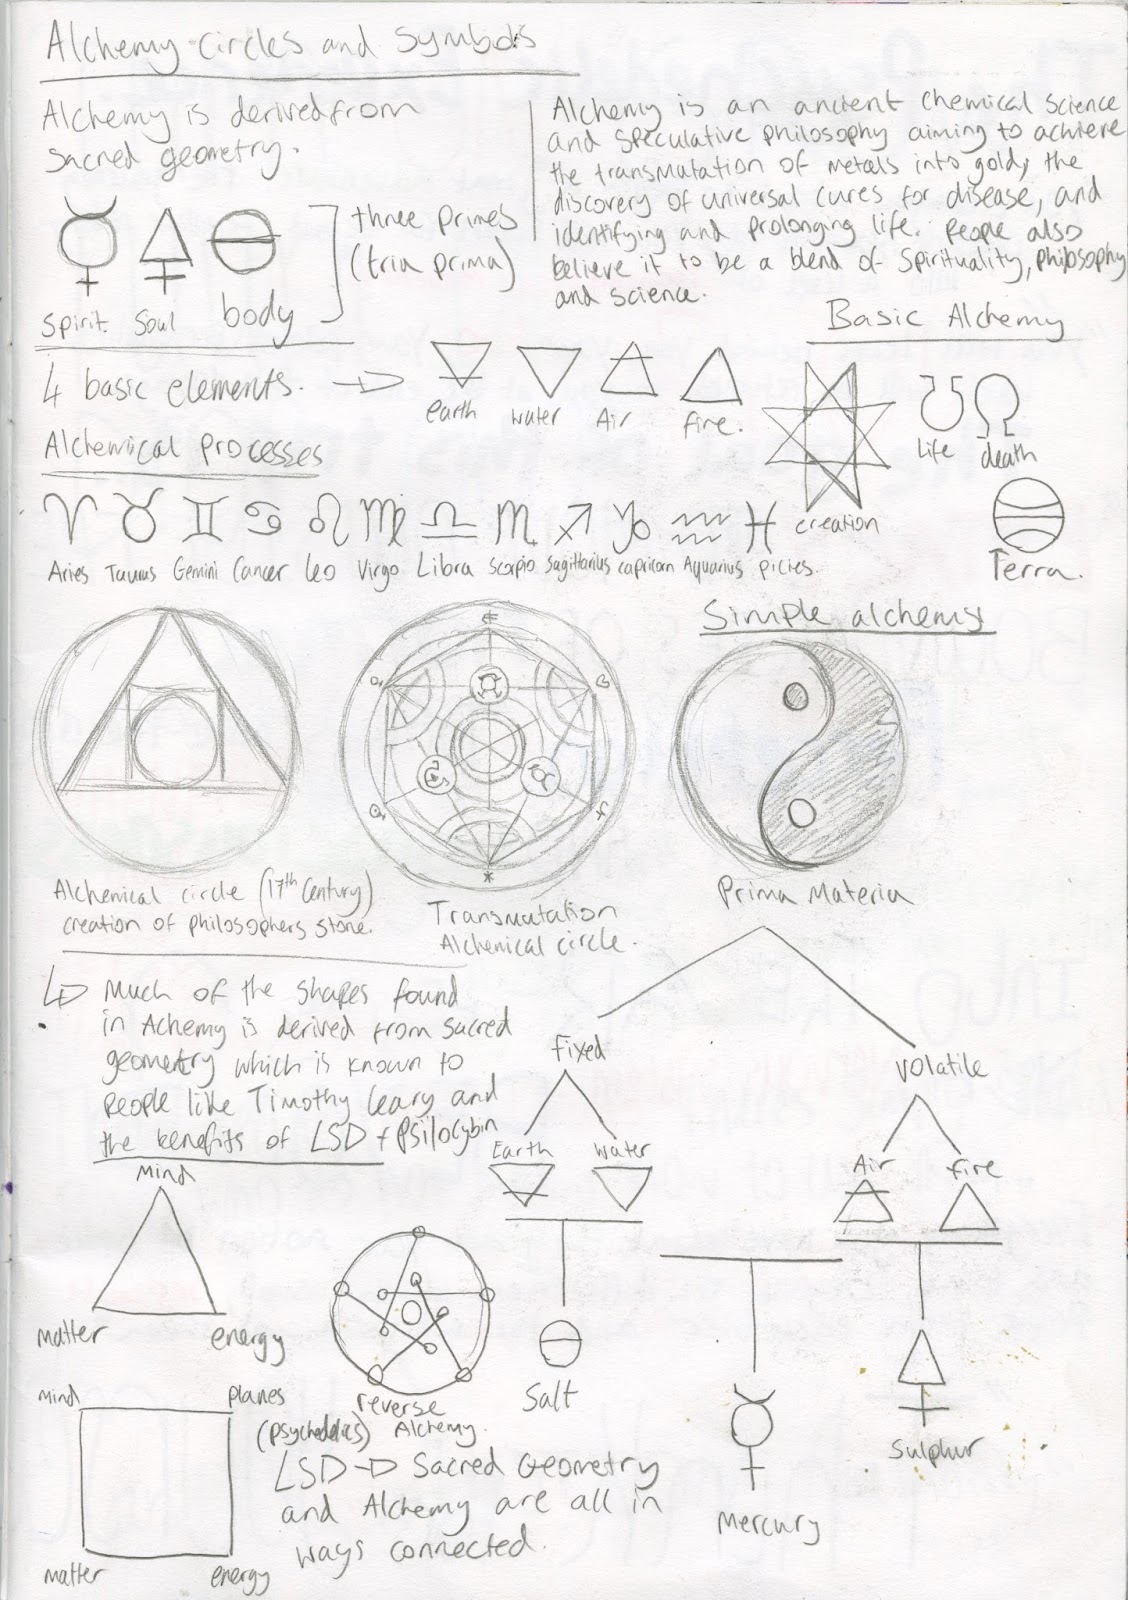 Alchemy circles and symbols
Alchemy is derived from
sacred geometry.
Alchemy is an ancient chemical science
and speculative philosophy aiming to achieve
the transmutation of metals into gold, the
discovery of universal cures for disease, and
identifying and prolonging life. People also
believe it to be a blend of spirituality, philosophy
and science.
three primes
(tria prima)
Spirit. Soul body
Basic Alchemy
4 basic elements.
earth water Air fire.
Life death
creation
Terra.
Alchemical processes
Aries Taurus Gemini Cancer Leo Virgo Libra Scorpio Sagittarius capricorn Aquarius picies.
Simple alchemy
Alchemical circle (17th Century)
creation of philosophers stone.
Transmutation
Alchemical circle.
Prima Materia
Much of the shapes found
in Achemy is derived from sacred
geometry which is known to
people like Timothy Leary and
the benefits of LSD + Psilocybin
Fixed
volatile
Earth water
Air fire
Mind
matter energy
Salt
Mercury
Sulphur
mind planes
matter energy
reverse
(psychedelics) Alchemy.
LSD Sacred Geometry
and Alchemy are all in
ways connected.